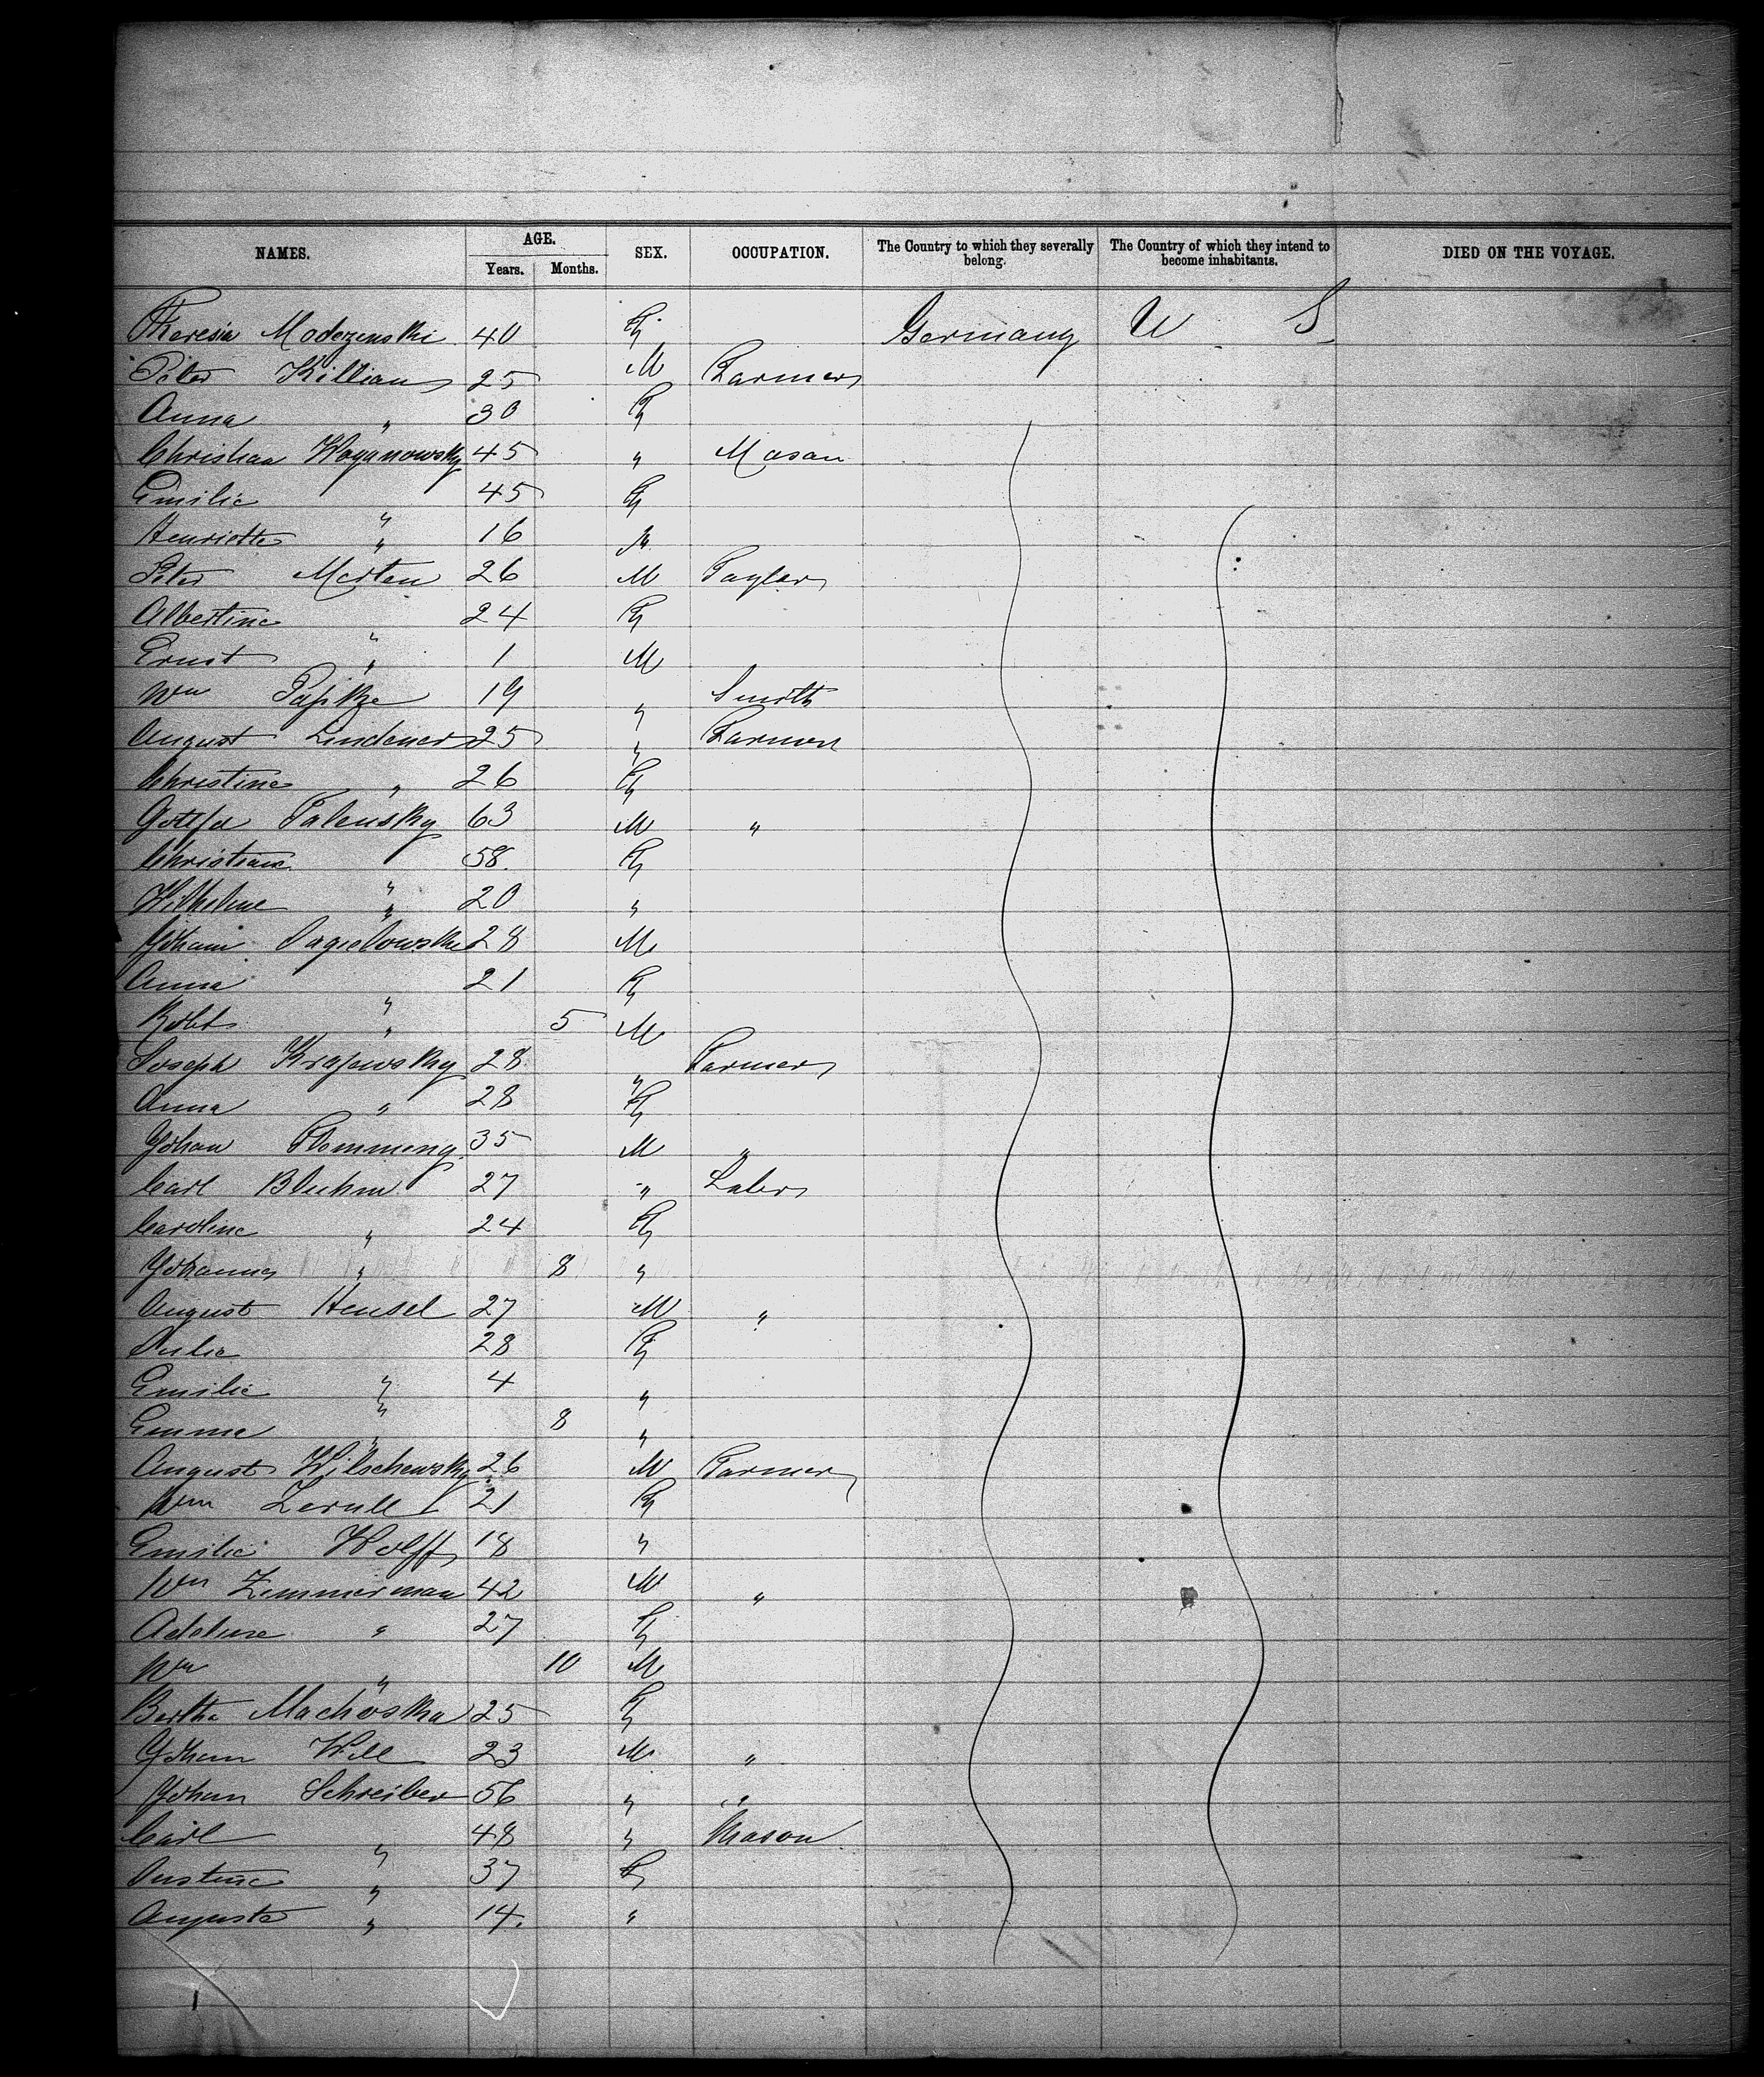 NAMES. AGE. SEX. OCCUPATION. The Country to which they severally belong. The Country of which they intend to become inhabitants. DIED ON THE VOYAGE.
Years. Months.
Theresia Moderzenski 40 F Germany U S
Peter Killian 25 M Farmer
Anna " 30 F
Christian Woganowsky 45 " Mason
Emilie " 45 F
Henriette " 16 "
Peter Merten 26 M Taylor
Albertine " 24 F
Ernst " 1 M
Wm 19 " Smith
August Lindener 25 " Farmer
Christine " 26 F
Gottfd Palensky 63 M "
Christiane " 58 F
Wilhelme " 20 "
Johann 28 M
Anna " 21 F
Robt " 5 M
Joseph Krajewsky 28 " Farmer
Anna " 28 F
Johan Flemming 35 M "
Carl Bluhm 27 " Labor
Caroline " 24 F
Johannes " 8 "
August Hensel 27 M "
Julie " 28 F
Emilie " 4 "
Emma " 8 "
August Wilschewsky 26 M Farmer
Wm Zerull 21 F
Emilie Wolff 18 "
Wm Zimmerman 42 M "
Adeline " 27 F
Wm " 10 M
Bertha Machoska 25 F
Johan Will 23 M "
Johan Schreiber 56 " "
Carl " 48 " Mason
Justine " 37 F
Auguste " 14. "